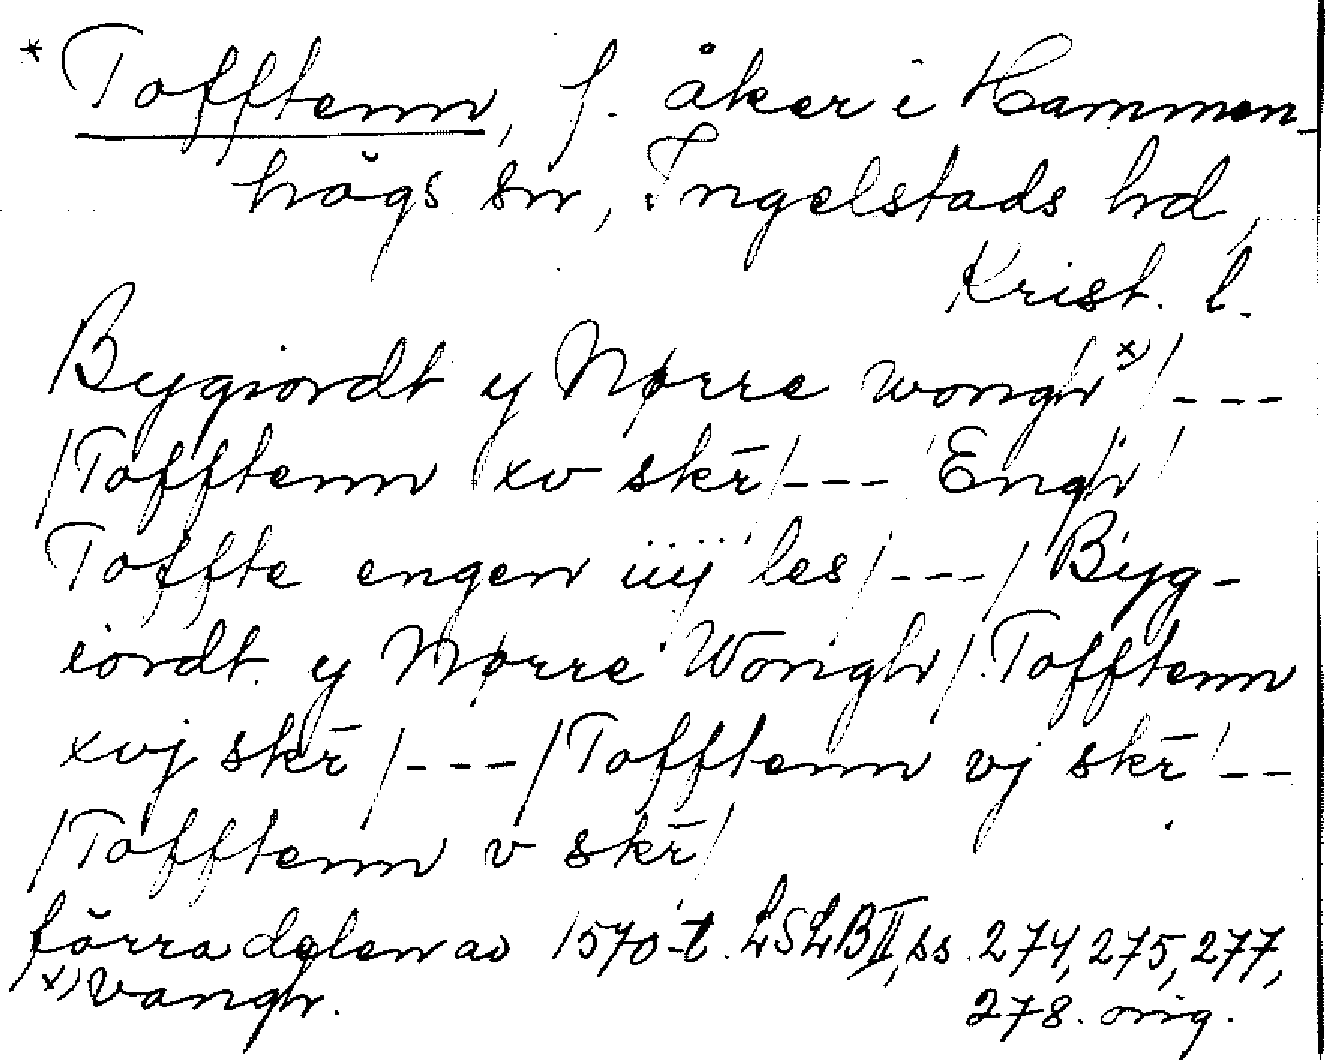 * Tofftenn, f. åker i Hammen-
högs sn, Ingelstads hd,
Krist. l.
Bygiordt y Nørre wongh x) / ---
/ Tofftenn xv skr̄ / --- / Engh /
Toffte engen iiij les / --- / Byg-
iordt y Nørre Wongh / Tofftenn
xvj skr̄ / --- / Tofftenn vj skr̄ / --
/ Tofftenn v skr̄ /
förra delen av 1570-t. LSLB II, ss. 274, 275, 277,
x) vangh. 278. orig.